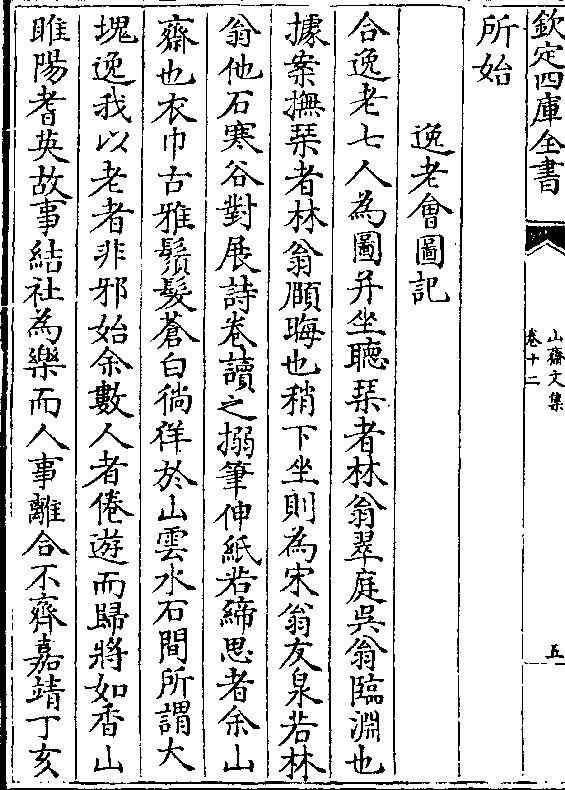 欽定四庫全書
山齋文集
卷十二
五
所始
逸老會圖記
合逸老七人為圖并坐聽琹者林翁翠庭吳翁臨淵也
據案撫琹者林翁頥晦也稍下坐則為宋翁友泉若林
翁他石寒谷對展詩卷讀之搦筆伸紙若締思者余山
齋也衣巾古雅鬚髮蒼白徜徉於山雲水石間所謂大
塊逸我以老者非邪始余數人者倦遊而歸將如香山
睢陽耆英故事結社為樂而人事離合不齊嘉靖丁亥